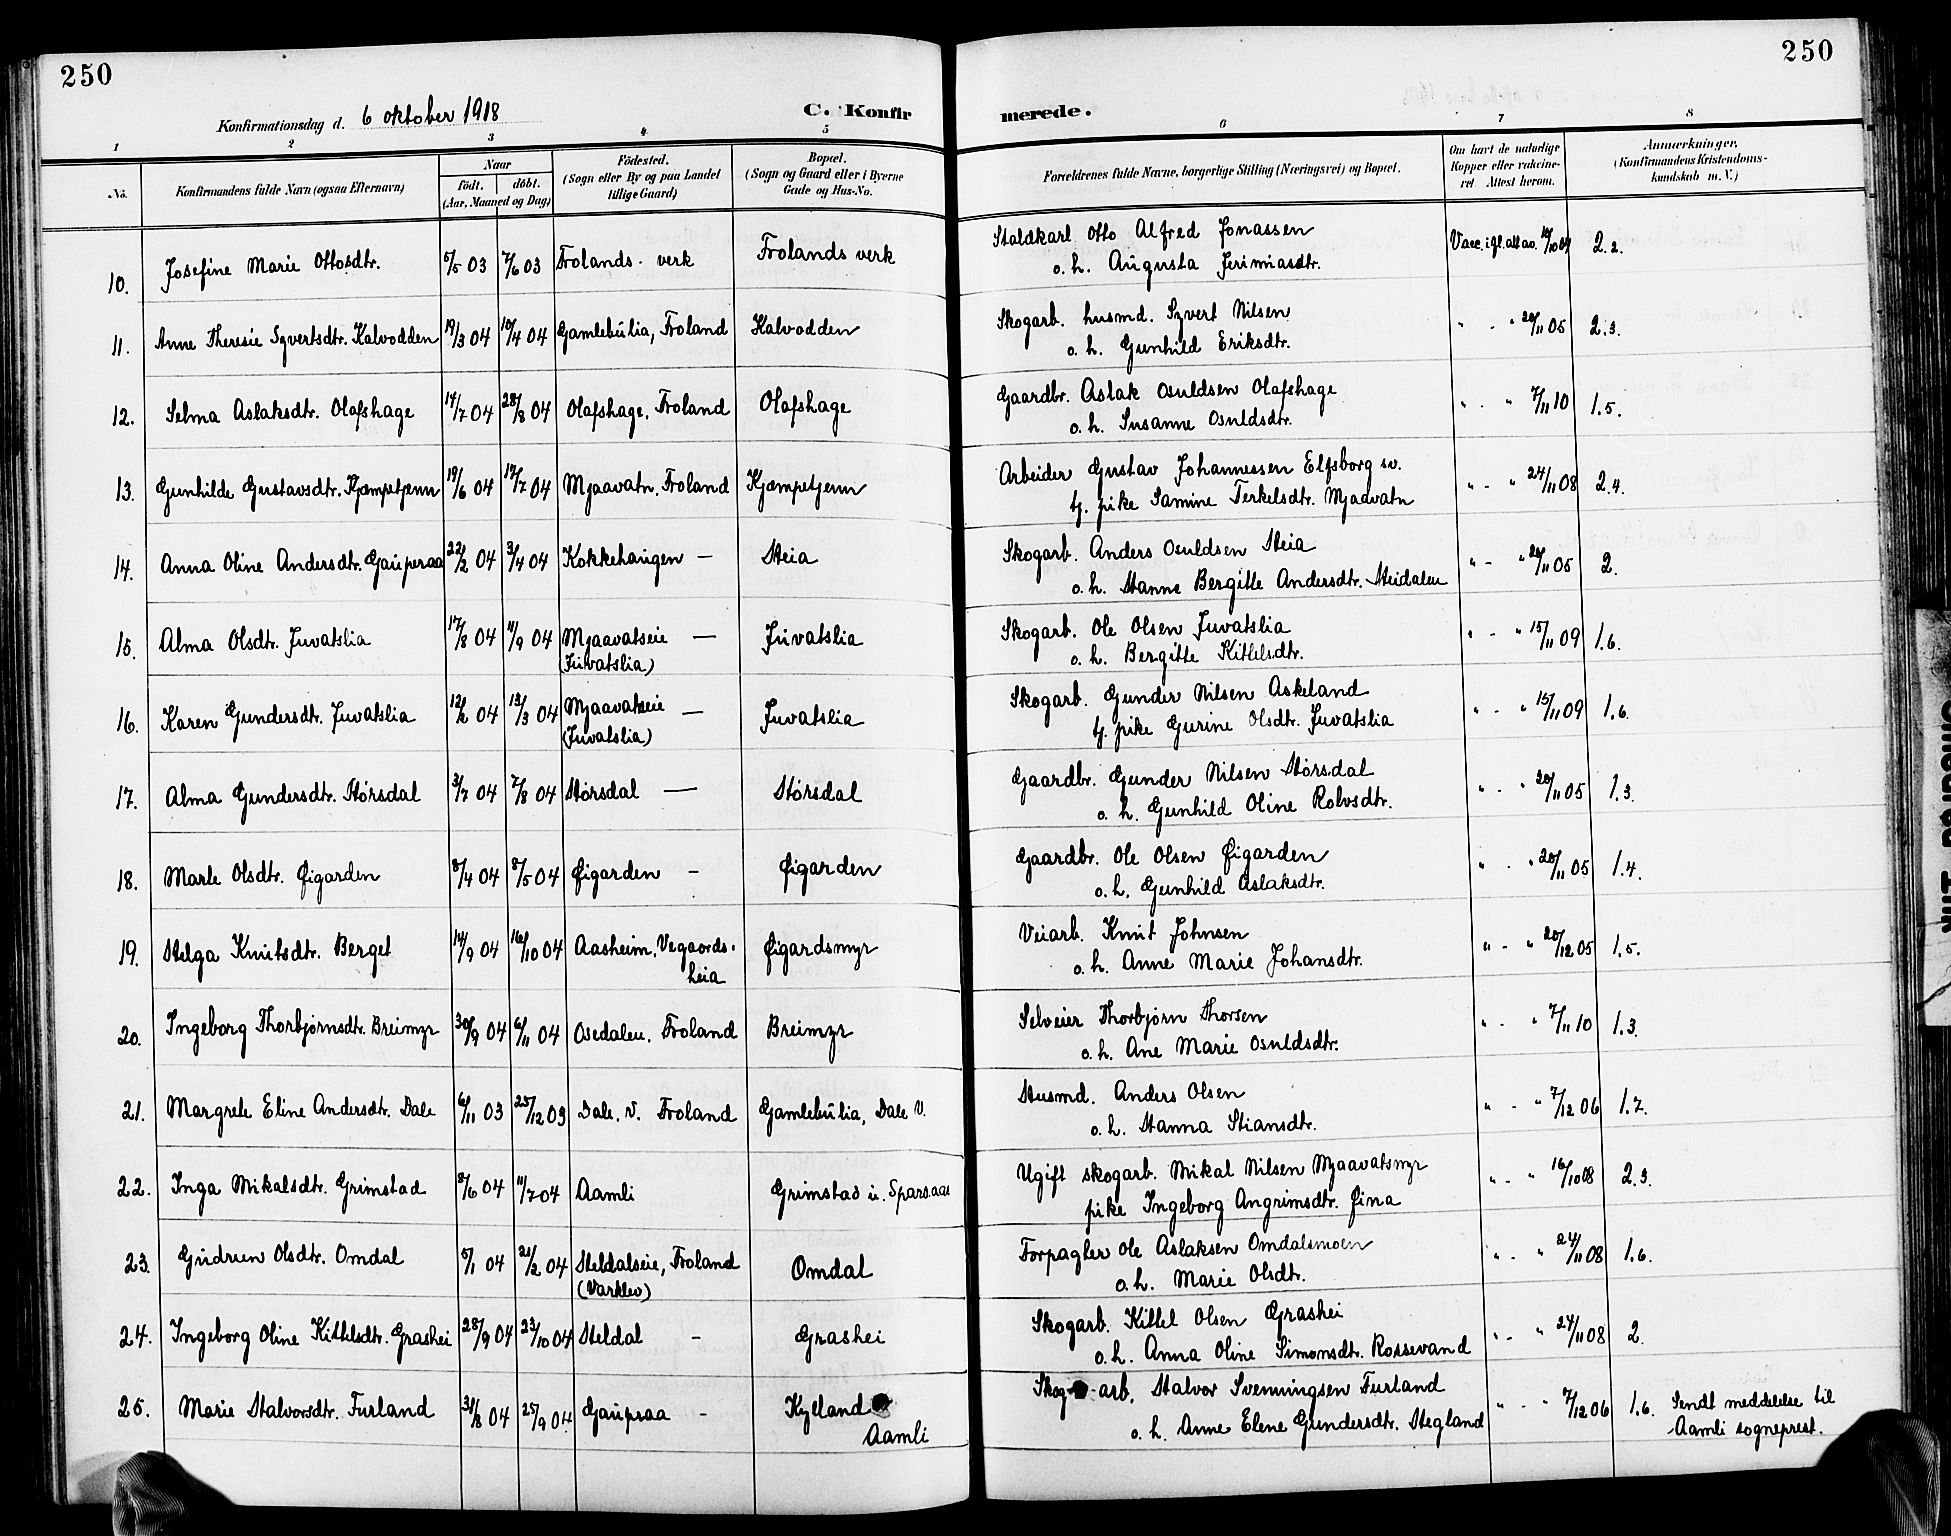 250
Konfirmationsdag d. 6 oktober 1918
C. Konfir
1 2 3 4 5
No. Konfirmandens fulde Navn (ogsaa Efternavn) Naar födt. döbt. (Aar, Maaned og Dag) Födested. (Sogn eller By og paa Landet tillige Gaard) Bopæl. (Sogn og Gaard eller i Byerne Gade og Hus-No.
10. Josefine Marie Ottosdtr. 5/5 03 7/6 03 Frolands verk Frolands verk
11. Anne Theresie Syvertsdtr. Kalvodden 19/3 04 10/4 04 Gamlebulia, Froland Kalvodden
12. Selma Aslaksdtr. Olafshage 14/7 04 28/8 04 Olafshage, Froland Olafshage
13. Gunhilde Gustavsdtr. Kjæmpetjenn 19/6 04 17/7 04 Mjaavatn, Froland Kjæmpetjenn
14. Anna Oline Andersdtr. Gauperaa 22/2 04 3/4 04 Kokkehaugen — Heia
15. Alma Olsdtr. Juvatslia 17/8 04 11/9 04 Mjaavatseie — Juvatslia
(Juvatslia)
16. Karen Gundersdtr. Juvatslia 12/2 04 13/3 04 Mjaavatseie — Juvatslia
(Juvatslia)
17. Alma Gundersdtr. Hørsdal 3/7 04 7/8 04 Hørsdal — Hørsdal
18. Marle Olsdtr. Øigarden 8/4 04 8/5 04 Øigarden - Øigarden
19. Helga Knutsdtr. Berget 14/9 04 16/10 04 Aasheim, Vegaords- Øigardsmyr
heia
20. Ingeborg Thorbjørnsdtr. Breimyr 30/9 04 6/11 04 Osedalen, Froland Breimyr
21. Margrete Eline Andersdtr. Dale 6/11 03 25/12 03 Dale, V. Froland Gamlebulia, Dale V.
22. Inga Mikalsdtr. Grimstad 8/6 04 11/7 04 Aamli Grimstad u. Sparsaas
23. Gudrun Olsdtr. Omdal 5/1 04 21/2 04 Heldalseie, Froland Omdal
(Varklev)
24. Ingeborg Oline Kittelsdtr. Grashei 28/9 04 23/10 04 Heldal - Grashei
25. Marie Halvorsdtr. Furland 31/8 04 25/9 04 Gaupraa - Kylland
Aamli
250
merede.
6 7 8
Forældrenes fulde Navne, borgerlige Stilling (Næringsvei) og Bopæl. Om havt de naturlige Kopper eller vakcineret Attest herom. Anmerkninger. (Konfirmandens Kristendomskundskab m. V.)
Staldkarl Otto Alfred Jonassen Vacc. i fl. att. av. 2.2.
o. h. Augusta Jerimiasdtr.
Skogarb. husmd. Syvert Nilsen " - " 20/11 05 2.3.
o. h. Gunhild Eriksdtr.
Gaardbr. Aslak Osuldsen Olafshage " - " 7/11 10 1.5.
o. h. Susanne Osuldsdtr.
Arbeider Gustav Johannessen Elfsborg sv. " - " 24/11 08 2.4.
tj. pike Samine Terkelsdtr. Mjaavatn
Skogarb. Anders Osuldsen Heia " - " 20/11 05 2.
o. h. Hanne Bergitte Andersdtr. Heidalen
Skogarb. Ole Olsen Juvatslia " - " 15/11 09 1.6.
o. h. Bergitte Kittelsdtr.
Skogarb. Gunder Nilsen Askeland " - " 15/11 09 1.6.
tj. pike Gurine Olsdtr. Juvatslia
Gaardbr. Gunder Nilsen Hørsdal " - " 20/11 05 1.3.
o. h. Gunhild Oline Rolvsdtr.
Gaardbr. Ole Olsen Øigarden " - " 20/11 05 1.4.
o. h. Gunhild Aslaksdtr.
Veiarb. Knut Johnsen " - " 20/12 05 1.5.
o. h. Anne Marie Johansdtr.
Selveier Thorbjørn Thorsen " - " 7/11 10 1.3.
o. h. Ane Marie Osuldsdtr.
Husmd. Anders Olsen " - " 7/12 06 1.7.
o. h. Hanna Stiansdtr.
Ugift skogarb. Mikal Nilsen Mjaavatsmyr " - " 16/10 08 2.3.
pike Ingeborg Angrimsdtr. Øina
Forpagter Ole Aslaksen Omdalsmoen " - " 24/11 08 1.6.
o. h. Marie Olsdtr.
Skogarb. Kittel Olsen Grashei " - " 24/11 08 2.
o. h. Anna Oline Simonsdtr. Rossevand
Skog-arb. Halvor Svenningsen Furland " - " 7/12 06 1.6. Sendt meddelelse til
o. h. Anne Elene Gundersdtr. Hegland Aamli sogneprest.